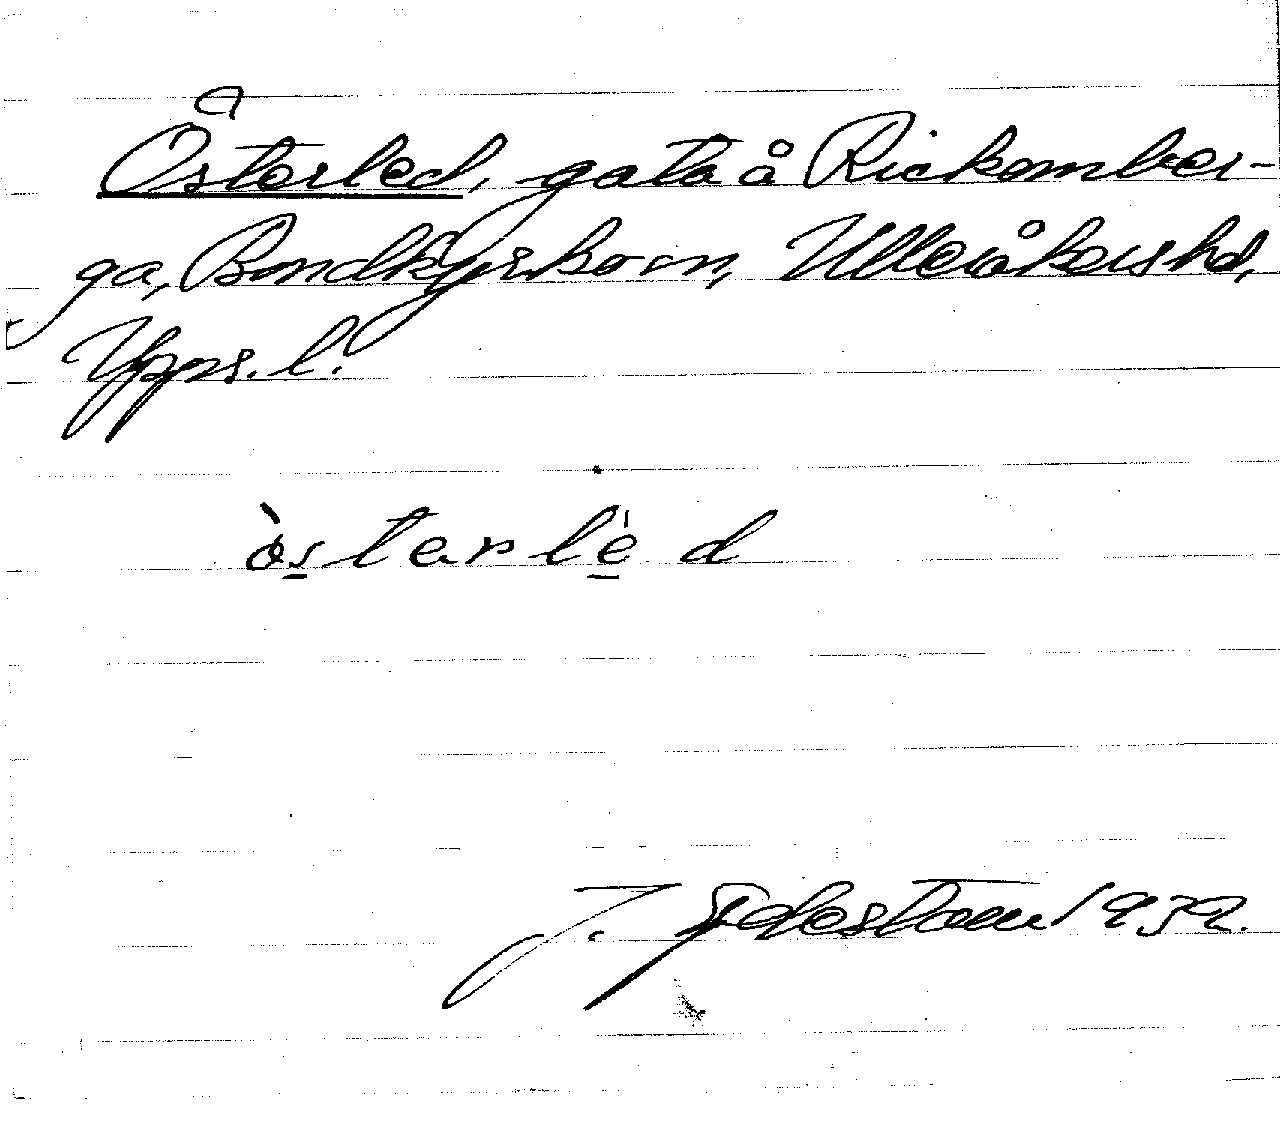 Österled, gata å Rickomber-
ga, Bondkyrko sn, Ulleråkers hd,
Upps. l.
òsterlèd
J. Sjdestam 1932.